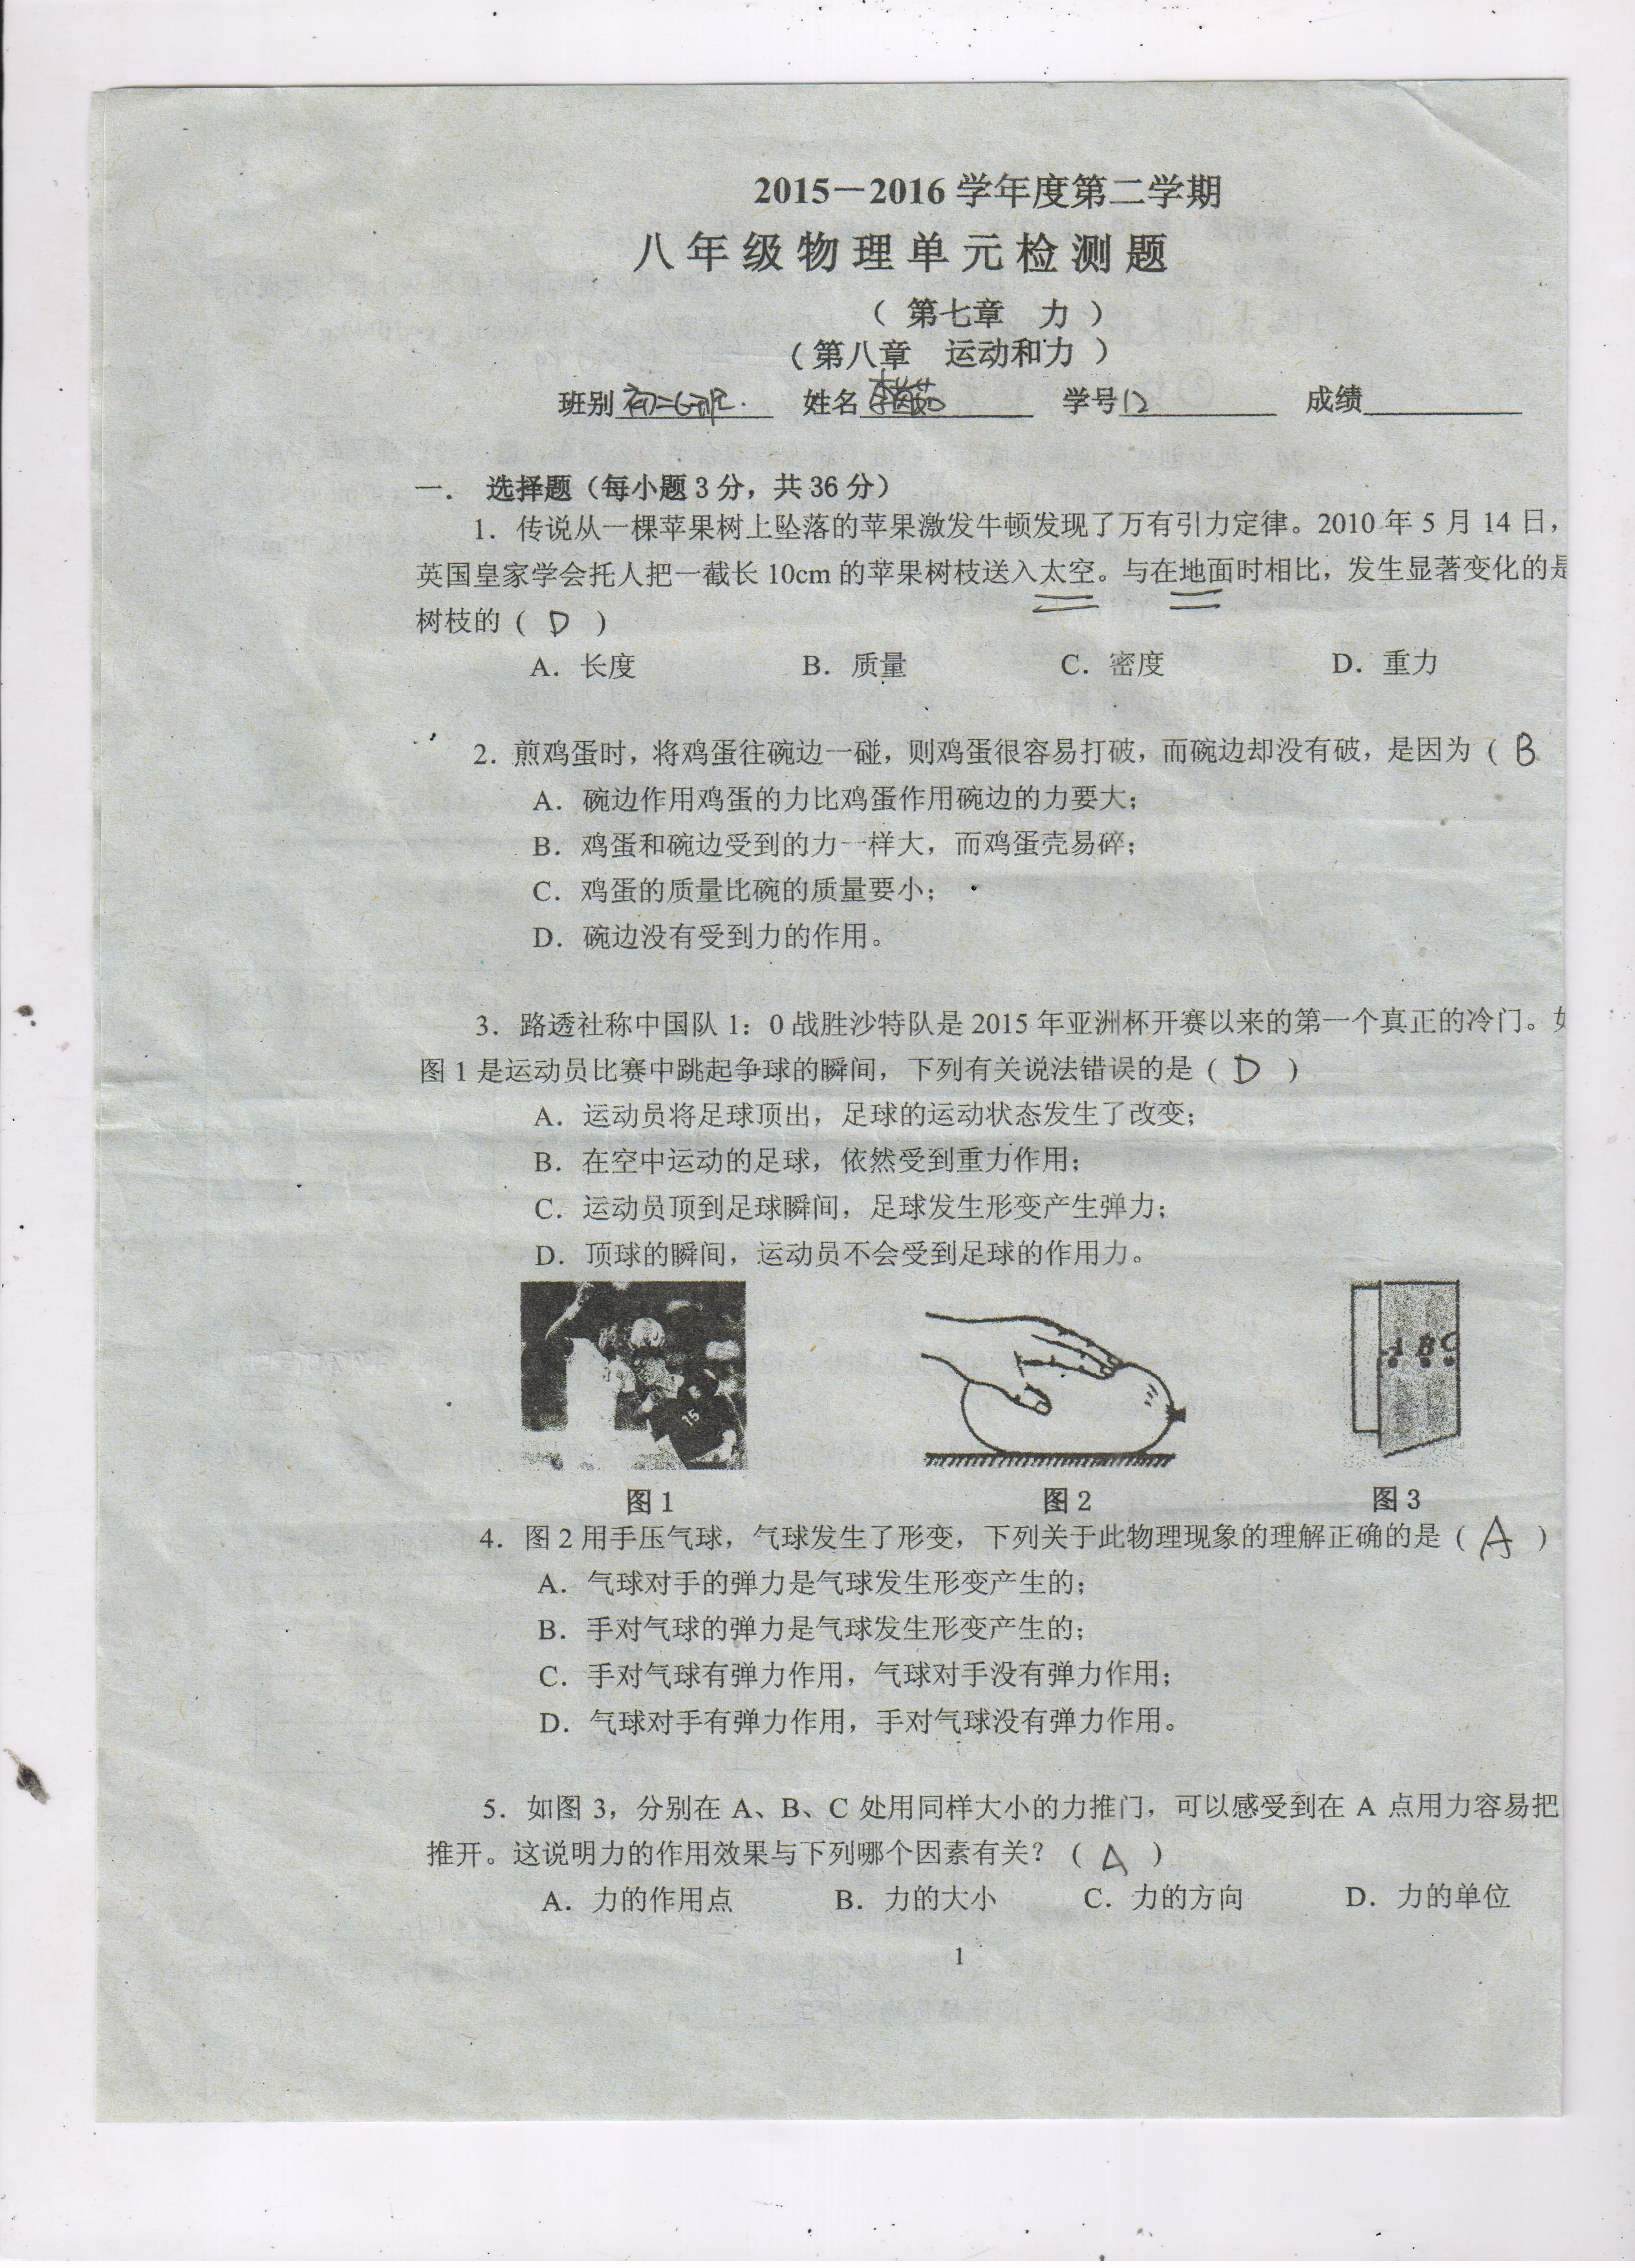 2015－2016 学年度第二学期
八年级物理单元检测题
（ 第七章 力 ）
（ 第八章 运动和力 ）
班别 姓名 学号12 成绩
一． 选择题（每小题 3 分，共 36 分）
1．传说从一棵苹果树上坠落的苹果激发牛顿发现了万有引力定律。2010 年 5 月 14 日，
英国皇家学会托人把一截长 10cm 的苹果树枝送入太空。与在地面时相比，发生显著变化的是
树枝的（ D ）
A．长度 B．质量 C．密度 D．重力
2．煎鸡蛋时，将鸡蛋往碗边一碰，则鸡蛋很容易打破，而碗边却没有破，是因为（ B
A．碗边作用鸡蛋的力比鸡蛋作用碗边的力要大；
B．鸡蛋和碗边受到的力一样大，而鸡蛋壳易碎；
C．鸡蛋的质量比碗的质量要小；
D．碗边没有受到力的作用。
3．路透社称中国队 1：0 战胜沙特队是 2015 年亚洲杯开赛以来的第一个真正的冷门。如
图 1 是运动员比赛中跳起争球的瞬间，下列有关说法错误的是（ D ）
A．运动员将足球顶出，足球的运动状态发生了改变；
B．在空中运动的足球，依然受到重力作用；
C．运动员顶到足球瞬间，足球发生形变产生弹力；
D．顶球的瞬间，运动员不会受到足球的作用力。
15
A B C
图 1 图 2 图 3
4．图 2 用手压气球，气球发生了形变，下列关于此物理现象的理解正确的是（ A ）
A．气球对手的弹力是气球发生形变产生的；
B．手对气球的弹力是气球发生形变产生的；
C．手对气球有弹力作用，气球对手没有弹力作用；
D．气球对手有弹力作用，手对气球没有弹力作用。
5．如图 3，分别在 A、B、C 处用同样大小的力推门，可以感受到在 A 点用力容易把
推开。这说明力的作用效果与下列哪个因素有关？（ A ）
A．力的作用点 B．力的大小 C．力的方向 D．力的单位
1